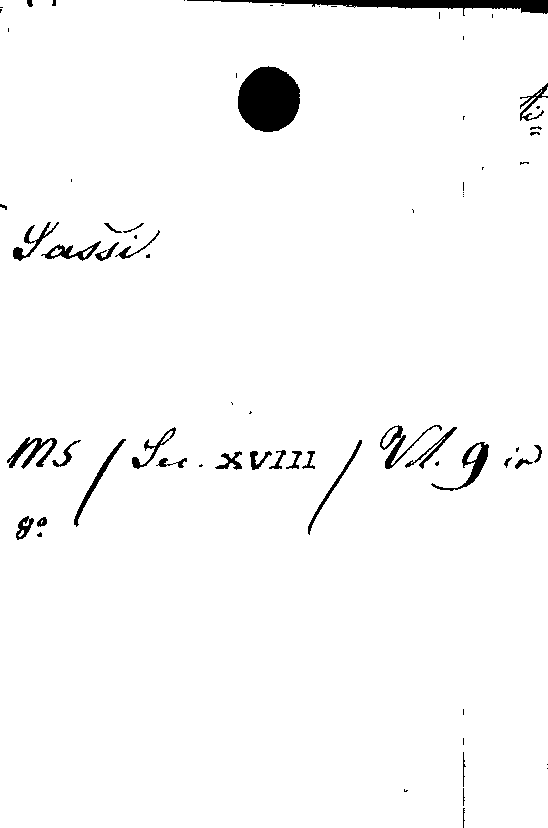 Sassi.
MS / Sec. XVIII / Vl. 9 in
8º